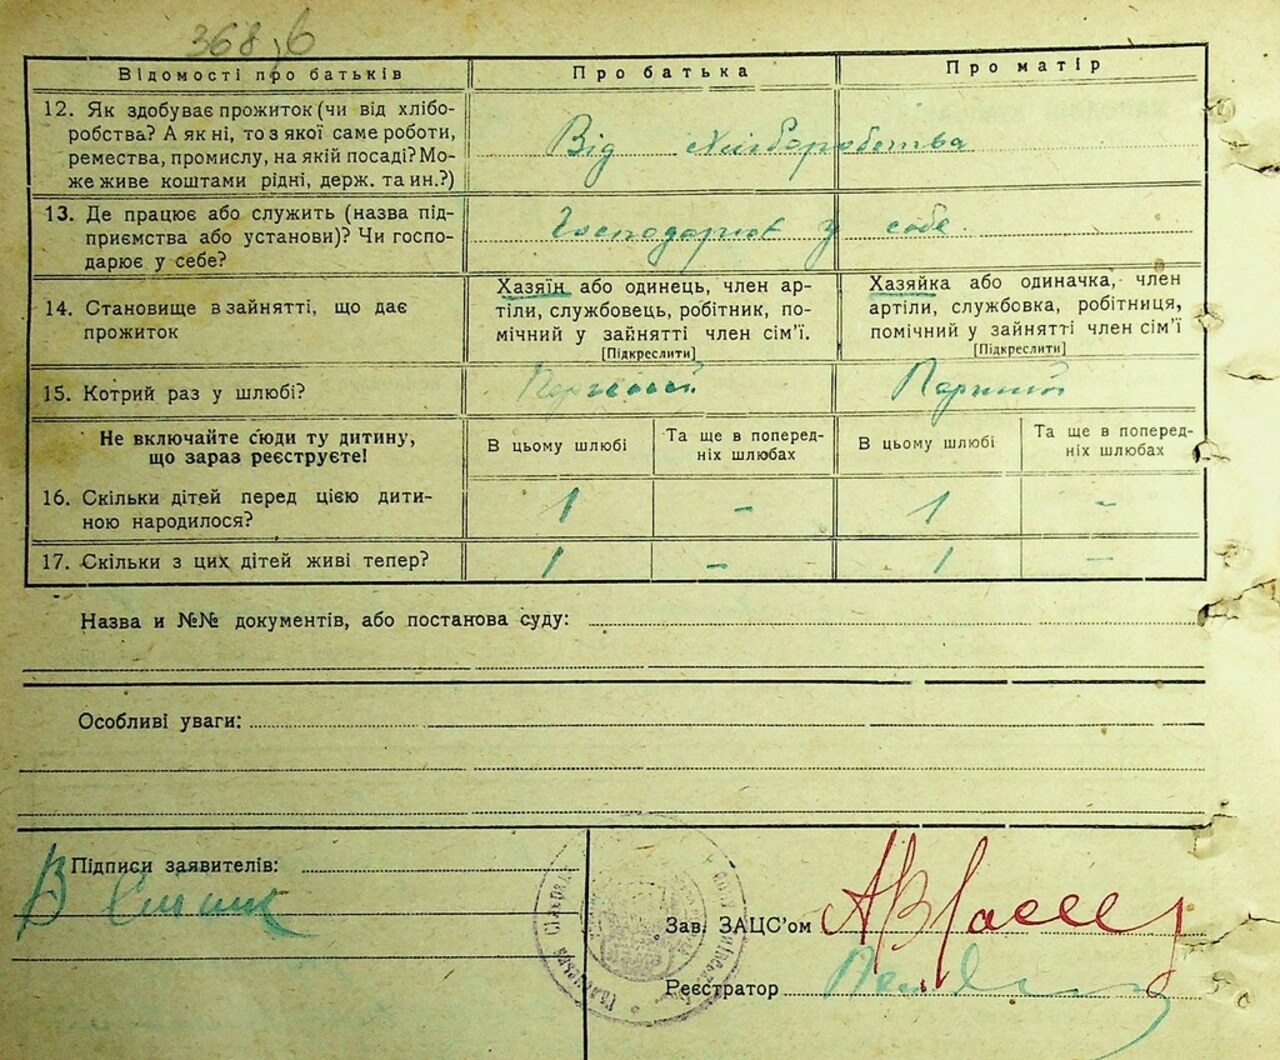 368
Відомості про батьків
Про батька
Про матір
12. Як здобуває прожиток (чи від хлібо-
робства? А як ні, то з якої саме роботи,
ремества, промислу, на якій посаді? Мо-
же живе коштами рідні, держ. та ин.?)
Від хліборобства
13. Де працює або служить (назва під-
приємства або установи)? Чи госпо-
дарює у себе?
Господарює у себе
14. Становище в зайнятті, що дає
прожиток
Хазяїн або одинець, член ар-
тіли, службовець, робітник, по-
мічний у зайнятті член сім'ї.
[Підкреслити]
Хазяйка або одиначка, член
артіли, службовка, робітниця,
помічний у зайнятті член сім'ї
[Підкреслити]
15. Котрий раз у шлюбі?
Перший
Перший
Не включайте сюди ту дитину,
що зараз реєструєте!
В цьому шлюбі
Та ще в поперед-
ніх шлюбах
В цьому шлюбі
Та ще в поперед-
ніх шлюбах
16. Скільки дітей перед цією дити-
ною народилося?
1 - 1 -
17. Скільки з цих дітей живі тепер?
1 - 1 -
Назва и №№ документів, або постанова суду:
Особливі уваги:
Підписи заявителів:
В
Зав. ЗАЦС'ом
Реєстратор